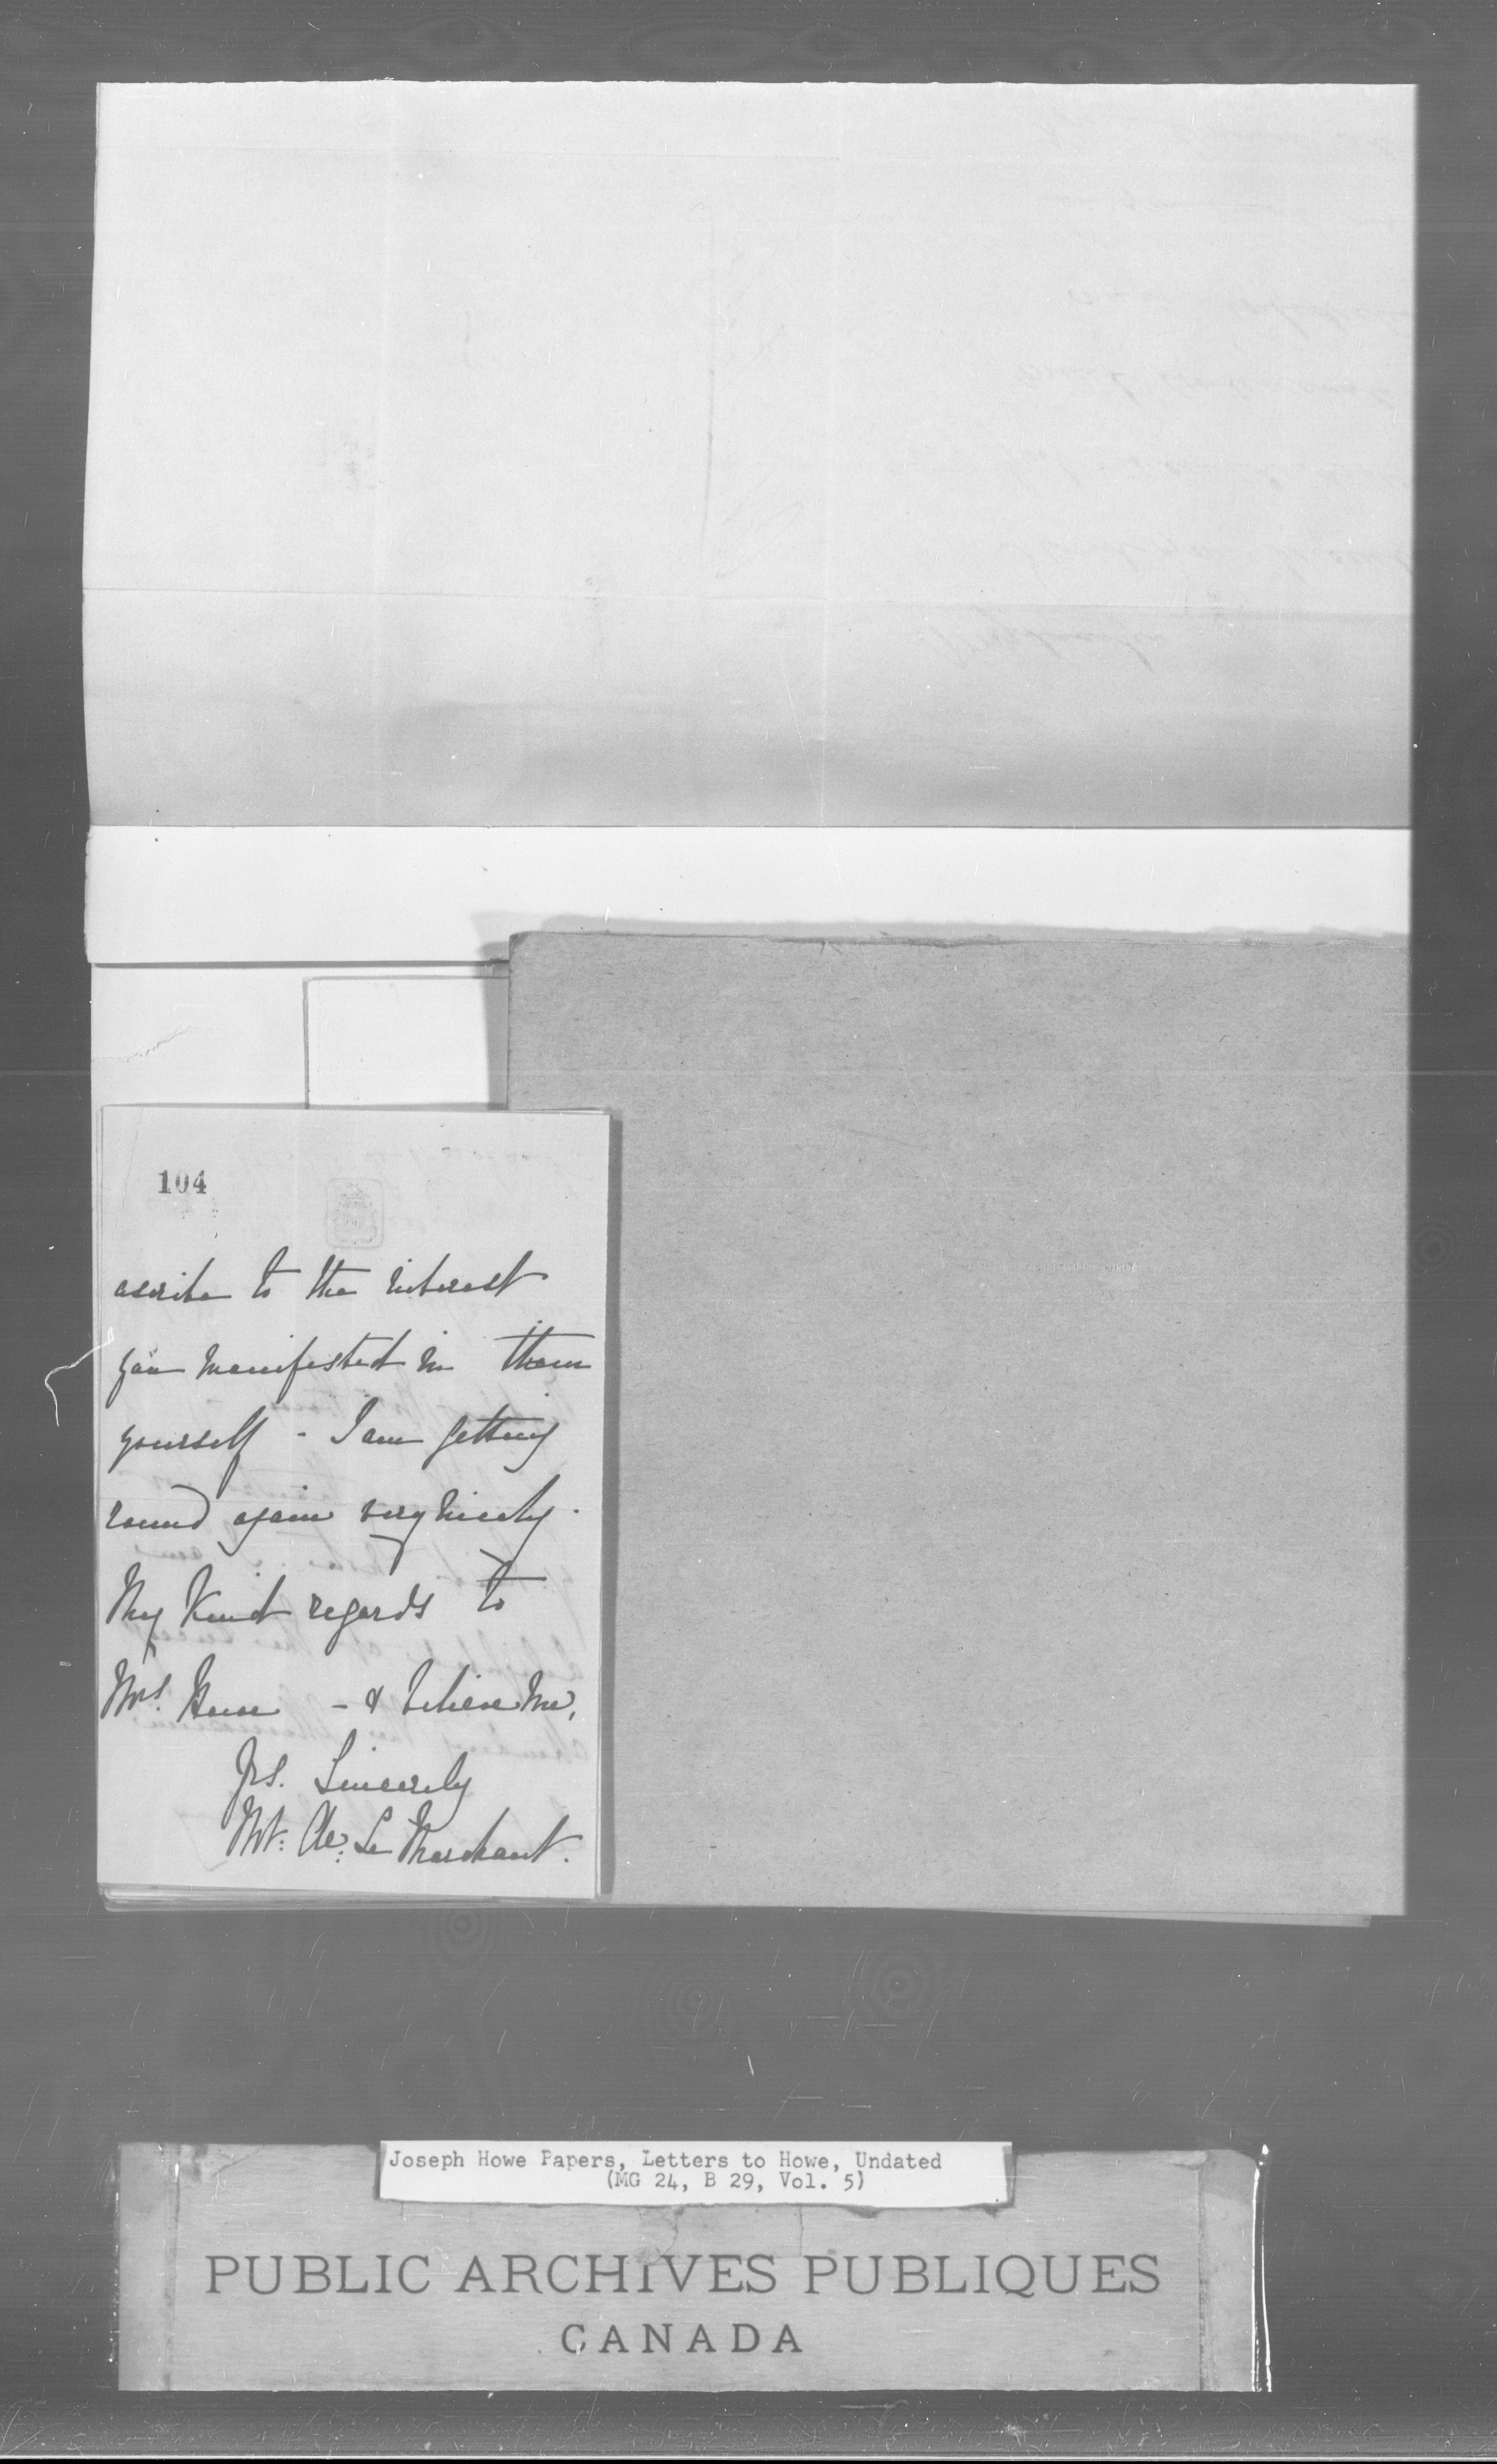 104
ascribe to the interest
you manifested in them
yourself - I am getting
round again very nicely.
My Kind regards to
Mrs. Howe - & believe Me,
Yrs. Sincerely
Mt: Le Marchant.
Joseph Howe Papers, Letters to Howe, Undated
(MG 24, B 29, Vol. 5)
PUBLIC ARCHIVES PUBLIQUES
CANADA